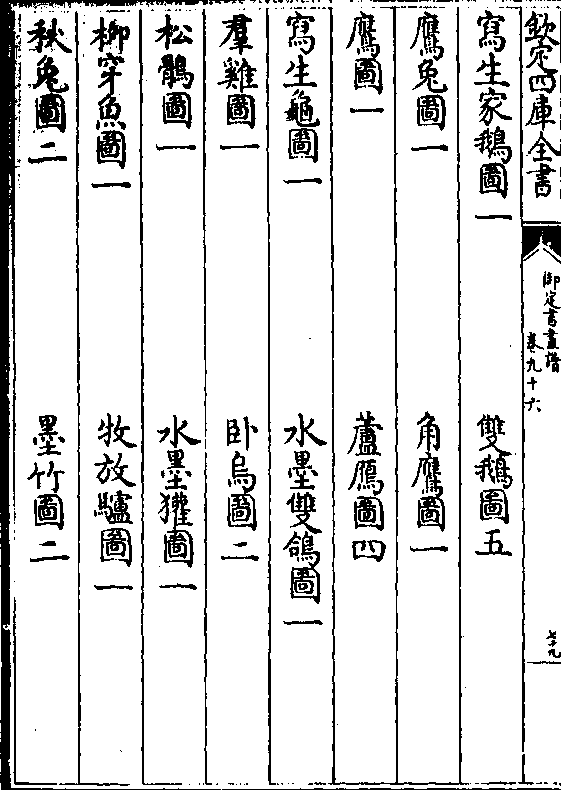 欽定四庫全書
御定書畫譜
卷九十六
七十九
寫生家鵝圖一　雙鵝圖五
鷹兔圖一　角鷹圖一
鷹圖一　蘆鴈圖四
寫生龜圖一　水墨雙鴿圖一
羣雞圖一　卧烏圖二
松鶻圖一　水墨獾圖一
栁穿魚圖一　牧放驢圖一
秋兔圖二　墨竹圖二